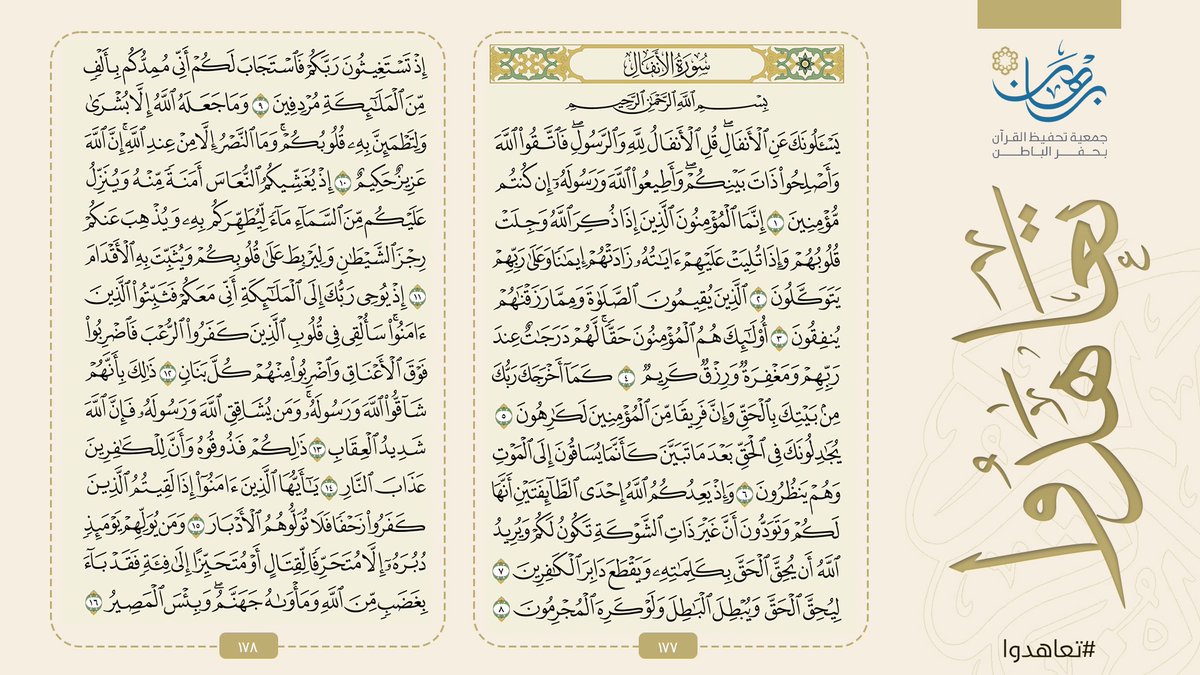 برهان
جمعية تحفيظ القرآن
بحفر الباطن
تعاهدوا
#تعاهدوا
سُورَةُ الأَنفَالِ
بِسْمِ ٱللَّهِ ٱلرَّحْمَٰنِ ٱلرَّحِيمِ
يَسْـَٔلُونَكَ عَنِ ٱلْأَنفَالِۖ قُلِ ٱلْأَنفَالُ لِلَّهِ وَٱلرَّسُولِۖ فَٱتَّقُوا۟ ٱللَّهَ
وَأَصْلِحُوا۟ ذَاتَ بَيْنِكُمْۖ وَأَطِيعُوا۟ ٱللَّهَ وَرَسُولَهُۥٓ إِن كُنتُم
مُّؤْمِنِينَ ١ إِنَّمَا ٱلْمُؤْمِنُونَ ٱلَّذِينَ إِذَا ذُكِرَ ٱللَّهُ وَجِلَتْ
قُلُوبُهُمْ وَإِذَا تُلِيَتْ عَلَيْهِمْ ءَايَٰتُهُۥ زَادَتْهُمْ إِيمَٰنًا وَعَلَىٰ رَبِّهِمْ
يَتَوَكَّلُونَ ٢ ٱلَّذِينَ يُقِيمُونَ ٱلصَّلَوٰةَ وَمِمَّا رَزَقْنَٰهُمْ
يُنفِقُونَ ٣ أُو۟لَٰٓئِكَ هُمُ ٱلْمُؤْمِنُونَ حَقًّاۚ لَّهُمْ دَرَجَٰتٌ عِندَ
رَبِّهِمْ وَمَغْفِرَةٌ وَرِزْقٌ كَرِيمٌ ٤ كَمَآ أَخْرَجَكَ رَبُّكَ
مِنۢ بَيْتِكَ بِٱلْحَقِّ وَإِنَّ فَرِيقًا مِّنَ ٱلْمُؤْمِنِينَ لَكَٰرِهُونَ ٥
يُجَٰدِلُونَكَ فِى ٱلْحَقِّ بَعْدَ مَا تَبَيَّنَ كَأَنَّمَا يُسَاقُونَ إِلَى ٱلْمَوْتِ
وَهُمْ يَنظُرُونَ ٦ وَإِذْ يَعِدُكُمُ ٱللَّهُ إِحْدَى ٱلطَّآئِفَتَيْنِ أَنَّهَا
لَكُمْ وَتَوَدُّونَ أَنَّ غَيْرَ ذَاتِ ٱلشَّوْكَةِ تَكُونُ لَكُمْ وَيُرِيدُ
ٱللَّهُ أَن يُحِقَّ ٱلْحَقَّ بِكَلِمَٰتِهِۦ وَيَقْطَعَ دَابِرَ ٱلْكَٰفِرِينَ ٧
لِيُحِقَّ ٱلْحَقَّ وَيُبْطِلَ ٱلْبَٰطِلَ وَلَوْ كَرِهَ ٱلْمُجْرِمُونَ ٨
١٧٧
إِذْ تَسْتَغِيثُونَ رَبَّكُمْ فَٱسْتَجَابَ لَكُمْ أَنِّى مُمِدُّكُم بِأَلْفٍ
مِّنَ ٱلْمَلَٰٓئِكَةِ مُرْدِفِينَ ٩ وَمَا جَعَلَهُ ٱللَّهُ إِلَّا بُشْرَىٰ
وَلِتَطْمَئِنَّ بِهِۦ قُلُوبُكُمْۚ وَمَا ٱلنَّصْرُ إِلَّا مِنْ عِندِ ٱللَّهِۚ إِنَّ ٱللَّهَ
عَزِيزٌ حَكِيمٌ ١٠ إِذْ يُغَشِّيكُمُ ٱلنُّعَاسَ أَمَنَةً مِّنْهُ وَيُنَزِّلُ
عَلَيْكُم مِّنَ ٱلسَّمَآءِ مَآءً لِّيُطَهِّرَكُم بِهِۦ وَيُذْهِبَ عَنكُمْ
رِجْزَ ٱلشَّيْطَٰنِ وَلِيَرْبِطَ عَلَىٰ قُلُوبِكُمْ وَيُثَبِّتَ بِهِ ٱلْأَقْدَامَ
١١ إِذْ يُوحِى رَبُّكَ إِلَى ٱلْمَلَٰٓئِكَةِ أَنِّى مَعَكُمْ فَثَبِّتُوا۟ ٱلَّذِينَ
ءَامَنُوا۟ۚ سَأُلْقِى فِى قُلُوبِ ٱلَّذِينَ كَفَرُوا۟ ٱلرُّعْبَ فَٱضْرِبُوا۟
فَوْقَ ٱلْأَعْنَاقِ وَٱضْرِبُوا۟ مِنْهُمْ كُلَّ بَنَانٍ ١٢ ذَٰلِكَ بِأَنَّهُمْ
شَآقُّوا۟ ٱللَّهَ وَرَسُولَهُۥۚ وَمَن يُشَاقِقِ ٱللَّهَ وَرَسُولَهُۥ فَإِنَّ ٱللَّهَ
شَدِيدُ ٱلْعِقَابِ ١٣ ذَٰلِكُمْ فَذُوقُوهُ وَأَنَّ لِلْكَٰفِرِينَ
عَذَابَ ٱلنَّارِ ١٤ يَٰٓأَيُّهَا ٱلَّذِينَ ءَامَنُوٓا۟ إِذَا لَقِيتُمُ ٱلَّذِينَ
كَفَرُوا۟ زَحْفًا فَلَا تُوَلُّوهُمُ ٱلْأَدْبَارَ ١٥ وَمَن يُوَلِّهِمْ يَوْمَئِذٍ
دُبُرَهُۥٓ إِلَّا مُتَحَرِّفًا لِّقِتَالٍ أَوْ مُتَحَيِّزًا إِلَىٰ فِئَةٍ فَقَدْ بَآءَ
بِغَضَبٍ مِّنَ ٱللَّهِ وَمَأْوَىٰهُ جَهَنَّمُۖ وَبِئْسَ ٱلْمَصِيرُ ١٦
١٧٨